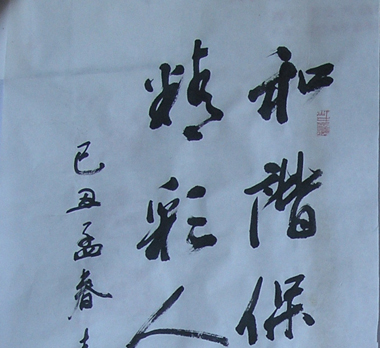 和谐保
精彩人
己丑孟春